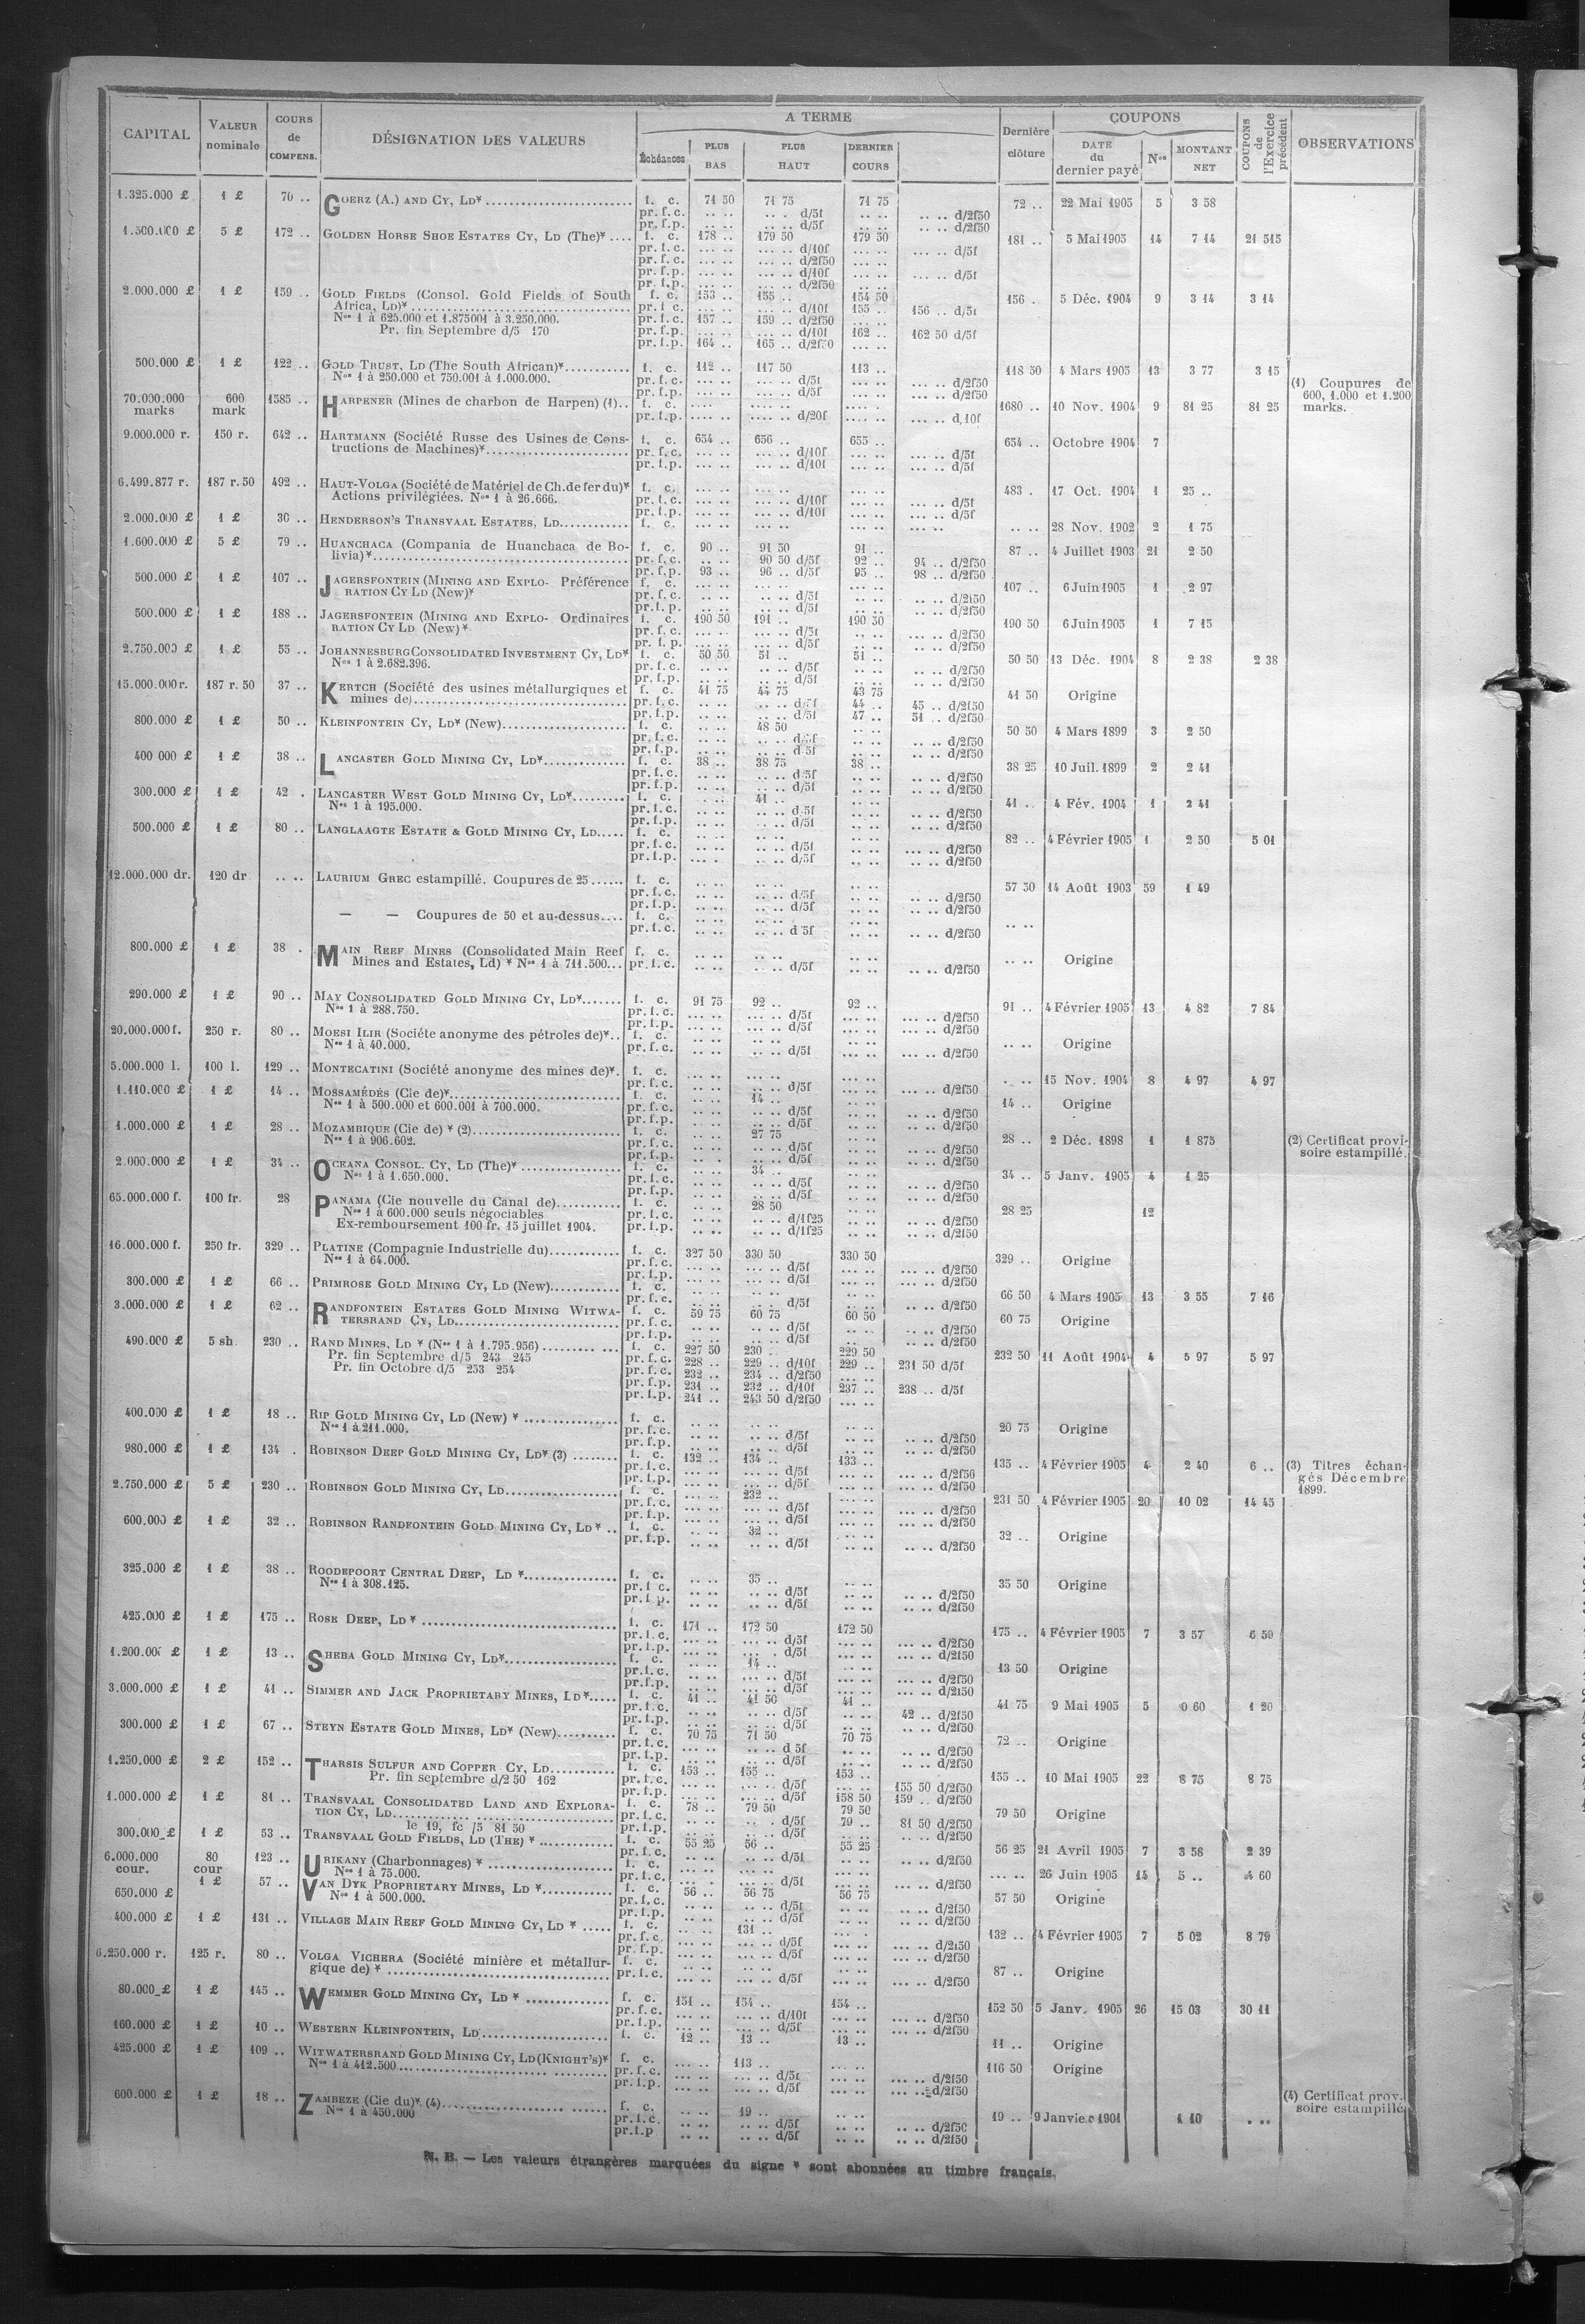 CAPITAL | VALEUR nominale | COURS de COMPENS. | DÉSIGNATION DES VALEURS | A TERME | Dernière clôture | COUPONS | COUPONS de l'Exercice précédent | OBSERVATIONS
Échéances | PLUS BAS | PLUS HAUT | DERNIER COURS | DATE du dernier payé | Nos | MONTANT NET
1.325.000 £ | 1 £ | 70 .. | GOERZ (A.) AND CY, LD* | f. c. | 71 50 | 71 75 | 71 75 | 72 .. | 22 Mai 1905 | 5 | 3 58
pr. f. c. | .. .. | .. . d/5f | .. .. | .. .. d/2f50
pr. f. p. | .. .. | .. .. d/5f | .. .. | .. .. d/2f50
1.500.000 £ | 5 £ | 172 .. | GOLDEN HORSE SHOE ESTATES CY, LD (The)* .... | f. c. | 178 .. | 179 50 | 179 50 | 181 .. | 5 Mai 1905 | 14 | 7 14 | 21 515
pr. f. c. | d/10f | d/5f
pr. f. c. | d/2f50
pr. f. p. | d/10f | d/5f
pr. f. p. | d/2f50
2.000.000 £ | 1 £ | 159 .. | GOLD FIELDS (Consol. Gold Fields of South | f. c. | 153 .. | 155 .. | 154 50 | 156 .. | 5 Déc. 1904 | 9 | 3 14 | 3 14
Africa, LD)* | pr. f. c. | d/10f | 155 .. | 156 .. d/5f
Nos 1 à 625.000 et 1.875001 à 3.250.000. | pr. f. c. | 157 .. | 159 .. d/2f50
Pr. fin Septembre d/5 170 | pr. f. p. | d/10f | 162 .. | 162 50 d/5f
pr. f. p. | 164 .. | 165 .. d/2f50
500.000 £ | 1 £ | 122 .. | GOLD TRUST, LD (The South African)* | f. c. | 112 .. | 117 50 | 113 .. | 118 50 | 4 Mars 1905 | 13 | 3 77 | 3 15
Nos 1 à 250.000 et 750.001 à 1.000.000. | pr. f. c. | d/5f | d/2f50 | (1) Coupures de
pr. f. p. | d/5f | d/2f50 | 600, 1.000 et 1.200
70.000.000 marks | 600 mark | 1585 .. | HARPENER (Mines de charbon de Harpen) (1).. | f. c. | 1680 .. | 10 Nov. 1904 | 9 | 81 25 | 81 25 | marks.
pr. f. p. | d/20f | d/10f
9.000.000 r. | 150 r. | 642 .. | HARTMANN (Société Russe des Usines de Cons- | f. c. | 654 .. | 656 .. | 655 .. | 654 .. | Octobre 1904 | 7
tructions de Machines)* | pr. f. c. | d/10f | d/5f
pr. f. p. | d/10f | d/5f
6.499.877 r. | 187 r. 50 | 492 .. | HAUT-VOLGA (Société de Matériel de Ch. de fer du)* | f. c. | 483 . | 17 Oct. 1904 | 1 | 25 ..
Actions privilégiées. Nos 1 à 26.666. | pr. f. c. | d/10f | d/5f
pr. f. p. | d/10f | d/5f
2.000.000 £ | 1 £ | 30 .. | HENDERSON'S TRANSVAAL ESTATES, LD | f. c. | .. .. | 28 Nov. 1902 | 2 | 1 75
1.600.000 £ | 5 £ | 79 .. | HUANCHACA (Compania de Huanchaca de Bo- | f. c. | 90 .. | 91 50 | 91 .. | 87 .. | 4 Juillet 1903 | 21 | 2 50
livia)* | pr. f. c. | 90 50 d/5f | 92 .. | 94 .. d/2f50
pr. f. p. | 93 .. | 96 .. d/5f | 95 .. | 98 .. d/2f50
500.000 £ | 1 £ | 107 .. | JAGERSFONTEIN (MINING AND EXPLO- Préférence | f. c. | 107 .. | 6 Juin 1905 | 1 | 2 97
RATION CY LD (New)* | pr. f. c. | d/5f | d/2f50
pr. f. p. | d/5f | d/2f50
500.000 £ | 1 £ | 188 .. | JAGERSFONTEIN (MINING AND EXPLO- Ordinaires | f. c. | 190 50 | 191 .. | 190 50 | 190 50 | 6 Juin 1905 | 1 | 7 15
RATION CY LD (New)* | pr. f. c. | d/5f | d/2f50
pr. f. p. | d/5f | d/2f50
2.750.000 £ | 1 £ | 55 .. | JOHANNESBURG CONSOLIDATED INVESTMENT CY, LD* | f. c. | 50 50 | 51 .. | 51 .. | 50 50 | 13 Déc. 1904 | 8 | 2 38 | 2 38
Nos 1 à 2.682.396. | pr. f. c. | d/5f | d/2f50
pr. f. p. | d/5f | d/2f50
15.000.000 r. | 187 r. 50 | 37 .. | KERTCH (Société des usines métallurgiques et | f. c. | 41 75 | 44 75 | 43 75 | 41 50 | Origine
mines de) | pr. f. c. | d/5f | 44 .. | 45 .. d/2f50
pr. f. p. | d/5f | 47 .. | 51 .. d/2f50
800.000 £ | 1 £ | 50 .. | KLEINFONTEIN CY, LD* (New) | f. c. | 48 50 | 50 50 | 4 Mars 1899 | 3 | 2 50
pr. f. c. | d/5f | d/2f50
pr. f. p. | d/5f | d/2f50
400 000 £ | 1 £ | 38 .. | LANCASTER GOLD MINING CY, LD* | f. c. | 38 .. | 38 75 | 38 .. | 38 25 | 10 Juil. 1899 | 2 | 2 41
pr. f. c. | d/5f | d/2f50
pr. f. p. | d/5f | d/2f50
300.000 £ | 1 £ | 42 . | LANCASTER WEST GOLD MINING CY, LD* | f. c. | 41 .. | 41 .. | 4 Fév. 1904 | 1 | 2 41
Nos 1 à 195.000. | pr. f. c. | d/5f | d/2f50
pr. f. p. | d/5f | d/2f50
500.000 £ | 1 £ | 80 .. | LANGLAAGTE ESTATE & GOLD MINING CY, LD | f. c. | 82 .. | 4 Février 1905 | 1 | 2 50 | 5 01
pr. f. c. | d/5f | d/2f50
pr. f. p. | d/5f | d/2f50
12.000.000 dr. | 120 dr | .. .. | LAURIUM GREC estampillé. Coupures de 25 | f. c. | 57 50 | 14 Août 1903 | 59 | 1 49
pr. f. c. | d/5f | d/2f50
pr. f. p. | d/5f | d/2f50
— — Coupures de 50 et au-dessus.... | f. c. | .. ..
pr. f. c. | d 5f | d/2f50
800.000 £ | 1 £ | 38 . | MAIN REEF MINES (Consolidated Main Reef | f. c. | .. .. | Origine
Mines and Estates, Ld) * Nos 1 à 711.500... | pr. f. c. | d/5f | d/2f50
290.000 £ | 1 £ | 90 .. | MAY CONSOLIDATED GOLD MINING CY, LD* | f. c. | 91 75 | 92 .. | 92 .. | 91 .. | 4 Février 1905 | 13 | 4 82 | 7 84
Nos 1 à 288.750. | pr. f. c. | d/5f | d/2f50
pr. f. p. | d/5f | d/2f50
20.000.000 f. | 250 r. | 80 .. | MOESI ILIR (Sociéte anonyme des pétroles de)*.. | f. c. | .. .. | Origine
Nos 1 à 40.000. | pr. f. c. | d/5f | d/2f50
5.000.000 l. | 100 l. | 129 .. | MONTECATINI (Société anonyme des mines de)*. | f. c. | 15 Nov. 1904 | 8 | 4 97 | 4 97
pr. f. c. | d/5f | d/2f50
1.110.000 £ | 1 £ | 14 .. | MOSSAMÉDÈS (Cie de)* | f. c. | 14 .. | 14 .. | Origine
Nos 1 à 500.000 et 600.001 à 700.000. | pr. f. c. | d/5f | d/2f50
pr. f. p. | d/5f | d/2f50
1.000.000 £ | 1 £ | 28 .. | MOZAMBIQUE (Cie de) * (2) | f. c. | 27 75 | 28 .. | 2 Déc. 1898 | 1 | 1 875 | (2) Certificat provi-
Nos 1 à 906.602. | pr. f. c. | d/5f | d/2f50 | soire estampillé.
pr. f. p. | d/5f | d/2f50
2.000.000 £ | 1 £ | 34 .. | OCEANA CONSOL. CY, LD (The)* | f. c. | 34 .. | 34 .. | 5 Janv. 1905 | 4 | 1 25
Nos 1 à 1.650.000. | pr. f. c. | d/5f | d/2f50
pr. f. p. | d/5f | d/2f50
65.000.000 f. | 100 fr. | 28 | PANAMA (Cie nouvelle du Canal de) | f. c. | 28 50 | 28 25 | 12
Nos 1 à 600.000 seuls négociables | pr. f. c. | d/1f25 | d/2f50
Ex-remboursement 100 fr. 15 juillet 1904. | pr. f. p. | d/1f25 | d/2f50
16.000.000 f. | 250 fr. | 329 .. | PLATINE (Compagnie Industrielle du) | f. c. | 327 50 | 330 50 | 330 50 | 329 .. | Origine
Nos 1 à 64.000. | pr. f. c. | d/5f | d/2f50
pr. f. p. | d/5f | d/2f50
300.000 £ | 1 £ | 66 .. | PRIMROSE GOLD MINING CY, LD (New) | f. c. | 66 50 | 4 Mars 1905 | 13 | 3 55 | 7 16
pr. f. c. | d/5f | d/2f50
3.000.000 £ | 1 £ | 62 .. | RANDFONTEIN ESTATES GOLD MINING WITWA- | f. c. | 59 75 | 60 75 | 60 50 | 60 75 | Origine
TERSRAND CY, LD | pr. f. c. | d/5f | d/2f50
pr. f. p. | d/5f | d/2f50
490.000 £ | 5 sh. | 230 .. | RAND MINES, LD * (Nos 1 à 1.795.956) | f. c. | 227 50 | 230 .. | 229 50 | 232 50 | 11 Août 1904 | 4 | 5 97 | 5 97
Pr. fin Septembre d/5 243 245 | pr. f. c. | 228 .. | 229 .. d/10f | 229 .. | 231 50 d/5f
Pr. fin Octobre d/5 253 254 | pr. f. c. | 232 .. | 234 .. d/2f50
pr. f. p. | 231 .. | 232 .. d/10f | 237 .. | 238 .. d/5f
pr. f. p. | 241 .. | 243 50 d/2f50
400.000 £ | 1 £ | 18 .. | RIP GOLD MINING CY, LD (New) * | f. c. | 20 75 | Origine
Nos 1 à 211.000. | pr. f. c. | d/5f | d/2f50
pr. f. p. | d/5f | d/2f50
980.000 £ | 1 £ | 134 . | ROBINSON DEEP GOLD MINING CY, LD* (3) | f. c. | 132 .. | 134 .. | 133 .. | 135 .. | 4 Février 1905 | 4 | 2 40 | 6 .. | (3) Titres échan-
pr. f. c. | d/5f | d/2f50 | gés Décembre
pr. f. p. | d/5f | d/2f50 | 1899.
2.750.000 £ | 5 £ | 230 .. | ROBINSON GOLD MINING CY, LD | f. c. | 232 .. | 231 50 | 4 Février 1905 | 20 | 10 02 | 14 45
pr. f. c. | d/5f | d/2f50
pr. f. p. | d/5f | d/2f50
600.000 £ | 1 £ | 32 .. | ROBINSON RANDFONTEIN GOLD MINING CY, LD * .. | f. c. | 32 .. | 32 .. | Origine
pr. f. p. | d/5f | d/2f50
325.000 £ | 1 £ | 38 .. | ROODEPOORT CENTRAL DEEP, LD * | f. c. | 35 .. | 35 50 | Origine
Nos 1 à 308.125. | pr. f. c. | d/5f | d/2f50
pr. f. p. | d/5f | d/2f50
425.000 £ | 1 £ | 175 .. | ROSE DEEP, LD * | f. c. | 171 .. | 172 50 | 172 50 | 175 .. | 4 Février 1905 | 7 | 3 57 | 6 59
pr. f. c. | d/5f | d/2f50
pr. f. p. | d/5f | d/2f50
1.200.00 £ | 1 £ | 13 .. | SHEBA GOLD MINING CY, LD* | f. c. | 14 .. | 13 50 | Origine
pr. f. c. | d/5f | d/2f50
pr. f. p. | d/5f | d/2f50
3.000.000 £ | 1 £ | 41 .. | SIMMER AND JACK PROPRIETARY MINES, LD* | f. c. | 41 .. | 41 50 | 41 .. | 41 75 | 9 Mai 1905 | 5 | 0 60 | 1 20
pr. f. c. | d/5f | 42 .. d/2f50
pr. f. p. | d/5f | d/2f50
300.000 £ | 1 £ | 67 .. | STEYN ESTATE GOLD MINES, LD* (New) | f. c. | 70 75 | 71 50 | 70 75 | 72 .. | Origine
pr. f. c. | d 5f | d/2f50
pr. f. p. | d/5f | d/2f50
1.250.000 £ | 2 £ | 152 .. | THARSIS SULFUR AND COPPER CY, LD | f. c. | 153 .. | 155 .. | 153 .. | 155 .. | 10 Mai 1905 | 22 | 8 75 | 8 75
Pr. fin septembre d/2 50 162 | pr. f. c. | d/5f | 155 50 d/2f50
pr. f. p. | d/5f | 158 50 | 159 .. d/2f50
1.000.000 £ | 1 £ | 81 .. | TRANSVAAL CONSOLIDATED LAND AND EXPLORA- | f. c. | 78 .. | 79 50 | 79 50 | 79 50 | Origine
TION CY, LD | pr. f. c. | d/5f | 79 .. | 81 50 d/2f50
le 19, fc /5 81 50 | pr. f. p. | d/5f | d/2f50
300.000 £ | 1 £ | 53 .. | TRANSVAAL GOLD FIELDS, LD (THE) * | f. c. | 55 25 | 56 .. | 55 25 | 56 25 | 21 Avril 1905 | 7 | 3 58 | 2 39
pr. f. c. | d/5f | d/2f50
6.000.000 cour. | 80 cour | 123 .. | URIKANY (Charbonnages) * | f. c. | 26 Juin 1905 | 14 | 5 .. | 4 60
Nos 1 à 75.000. | pr. f. c. | d/5f | d/2f50
650.000 £ | 1 £ | 57 .. | VAN DYK PROPRIETARY MINES, LD * | f. c. | 56 .. | 56 75 | 56 75 | 57 50 | Origine
Nos 1 à 500.000. | pr. f. c. | d/5f | d/2f50
pr. f. p. | d/5f | d/2f50
400.000 £ | 1 £ | 131 .. | VILLAGE MAIN REEF GOLD MINING CY, LD * | f. c. | 131 .. | 132 .. | 4 Février 1905 | 7 | 5 02 | 8 79
pr. f. c. | d/5f | d/2f50
pr. f. p. | d/5f | d/2f50
6.250.000 r. | 125 r. | 80 .. | VOLGA VICHERA (Société minière et métallur- | f. c. | 87 .. | Origine
gique de) * | pr. f. c. | d/5f | d/2f50
80.000 £ | 1 £ | 145 .. | WEMMER GOLD MINING CY, LD * | f. c. | 151 .. | 154 .. | 154 .. | 152 50 | 5 Janv. 1905 | 26 | 15 03 | 30 11
pr. f. c. | d/10f | d/2f50
pr. f. p. | d/5f | d/2f50
160.000 £ | 1 £ | 10 .. | WESTERN KLEINFONTEIN, LD | f. c. | 12 .. | 13 .. | 13 .. | 11 .. | Origine
425.000 £ | 1 £ | 109 .. | WITWATERSRAND GOLD MINING CY, LD (KNIGHT'S)* | f. c. | 113 .. | 116 50 | Origine
Nos 1 à 412.500 | pr. f. c. | d/5f | d/2f50
pr. f. p. | d/5f | d/2f50
600.000 £ | 1 £ | 18 .. | ZAMBEZE (Cie du)*. (4) | f. c. | 19 .. | 19 .. | 9 Janvier 1901 | 1 10 | (4) Certificat prov.
Nos 1 à 450.000 | pr. f. c. | d/5f | d/2f50 | soire estampillé
pr. f. p | d/5f | d/2f50
N. B. — Les valeurs étrangères marquées du signe * sont abonnées au timbre français.